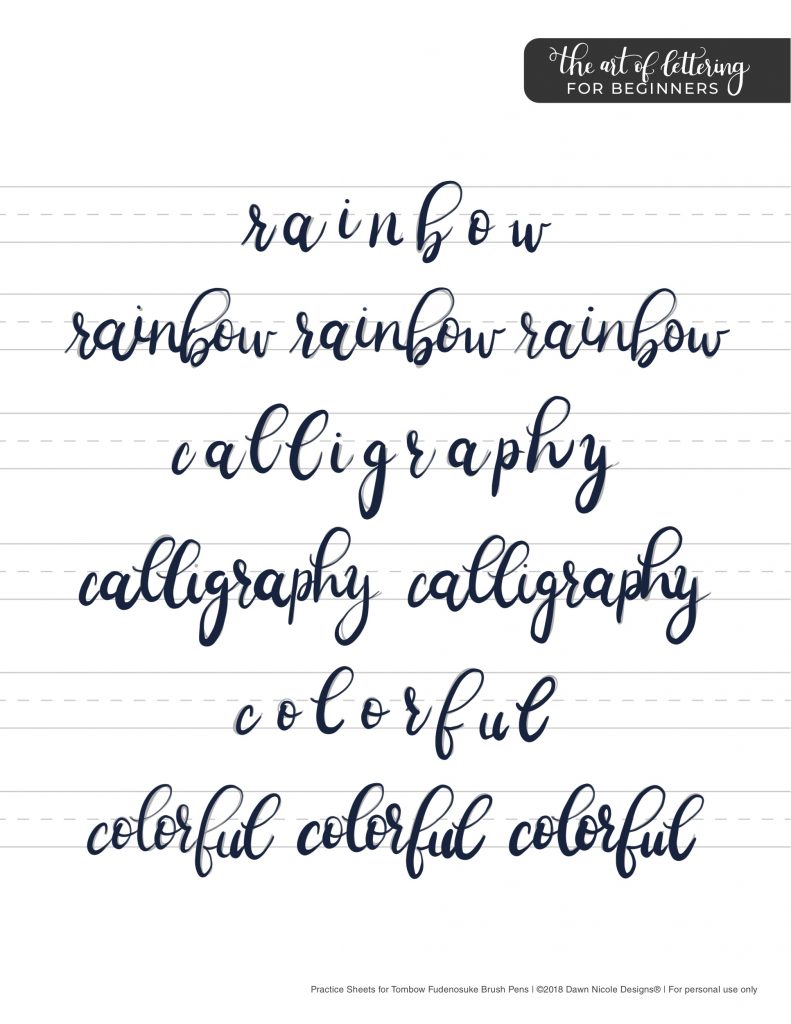 the art of lettering
FOR BEGINNERS
rainbow
rainbow rainbow rainbow
calligraphy
calligraphy calligraphy
colorful
colorful colorful colorful
Practice Sheets for Tombow Fudenosuke Brush Pens | ©2018 Dawn Nicole Designs® | For personal use only